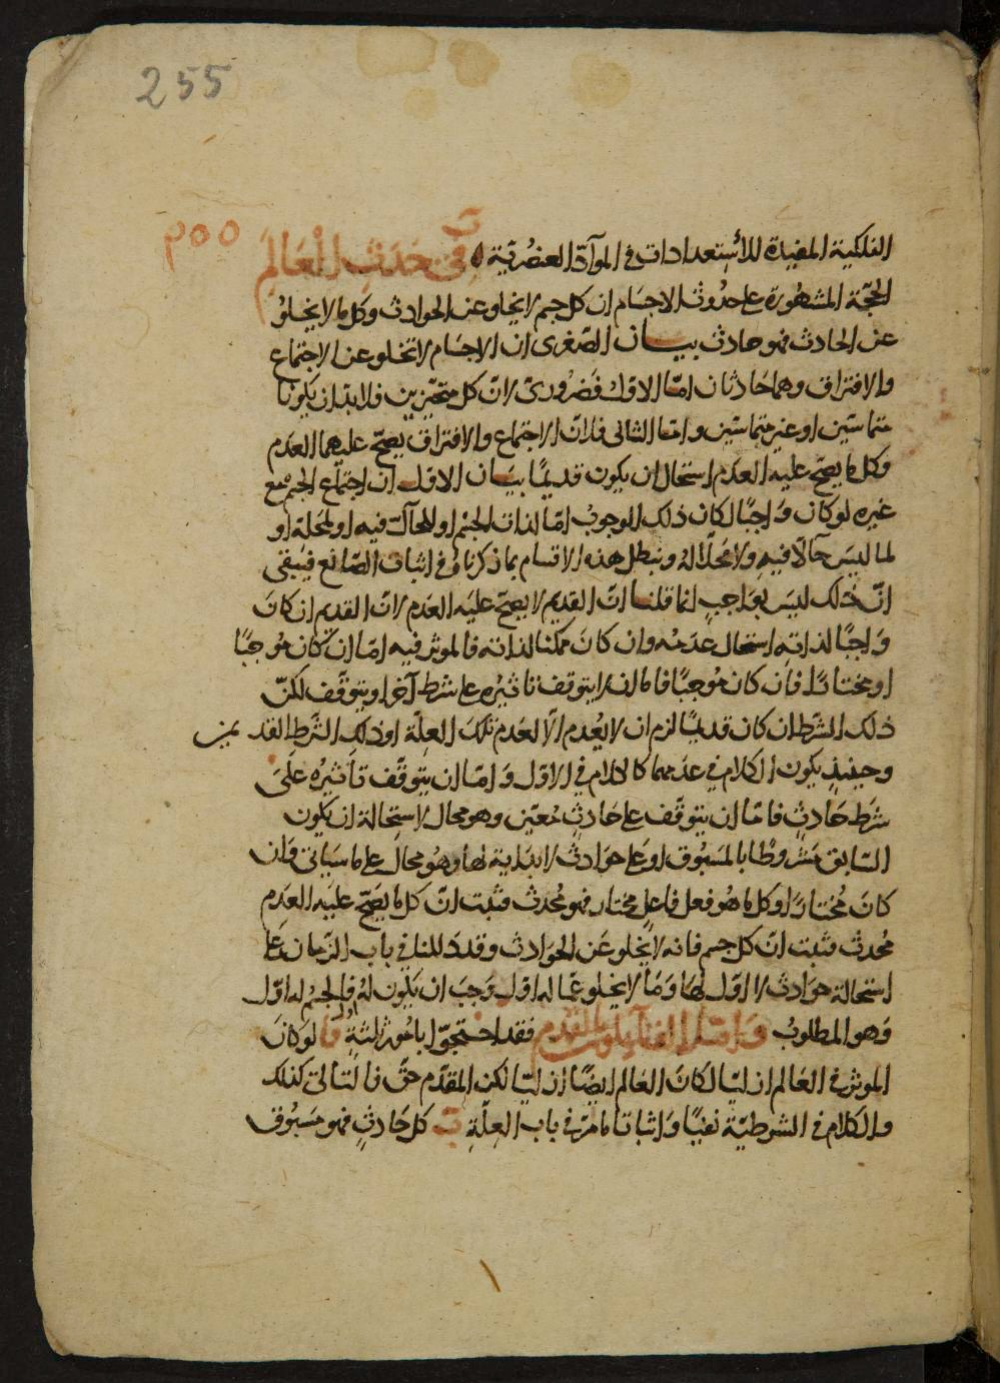 255
٢٥٥
الفلكية المفيدة للاستعدادات في المواد العنصرية ب في حدث العالم
الحجة المشهورة على حدوث الاجسام ان كل جسم لا يخلو عن الحوادث وكل ما لا يخلو
عن الحادث فهو حادث بيان الصغرى ان الاجسام لا تخلو عن الاجتماع
والافتراق وهما حادثان امّا الاول فضرورىّ لانّ كل متحيّزين فلا بدّ ان يكونا
متماسّين او غير متماسّين وامّا الثانى فلانّ الاجتماع والافتراق يصحّ عليهما العدم
وكل ما يصحّ عليه العدم استحال ان يكون قديمًا بيان الاول ان اجتماع الجسم مع
غيره لو كان واجبًا لكان ذلك الوجوب امّا لذات الجسم او للحالّ فيه او لمحله او
لما ليس حالّا فيه ولا محلّا له ونبطل هذه الاقسام بما ذكرنا فى اثبات الصّانع فيبقى
انّ ذلك ليس بواجب انما قلنا انّ القديم لا يصحّ عليه العدم لانّ القديم ان كان
واجبًا لذاته استحال عدمه وان كان ممكنا لذاته فالموثر فيه امّا ان كان موجبًا
او مختارًا فان كان موجبًا فاما ان لا يتوقف تاثيره على شرط آخر او يتوقّف لكنّ
ذلك الشرط ان كان قديمًا لزم ان لا يُعدم الّا لعدم تلك العلّة او ذلك الشرط القديمين
وحينئذ يكون الكلام في عدمهما كالكلام في الاوّل وامّا ان يتوقّف تأثيره على
شرط حادثٍ فامّا ان يتوقّف على حادثٍ معيّن وهو محال لاستحالة ان يكون
السّابق مشروطًا بالمسبوق او على حوادث لا بداية لها وهو محال على ما سياتى وان
كان مختارًا وكل ما هو فعل فاعلٍ مختار فهو محدث فثبت انّ كل ما يصحّ عليه العدم
محدث فثبت انّ كل جسم فانه لا يخلو عن الحوادث وقد دللنا في باب الزمان على
استحالة حوادث لا اوّل لها وما لا يخلو عمّا له اول وجب ان يكون له اول فالجسم له اوّل
وهو المطلوب وامّا القائلون بالقدم فقد احتجّوا بامور ثلثةٍ ا لو كان
الموثر في العالم ازليّا لكان العالم ايضًا ازليّا لكن المقدّم حقّ فالتالى كذلك
والكلام في الشرطيّة نفيًا واثباتا ما مرّ في باب العلّة ب كل حادثٍ فهو مسبوق